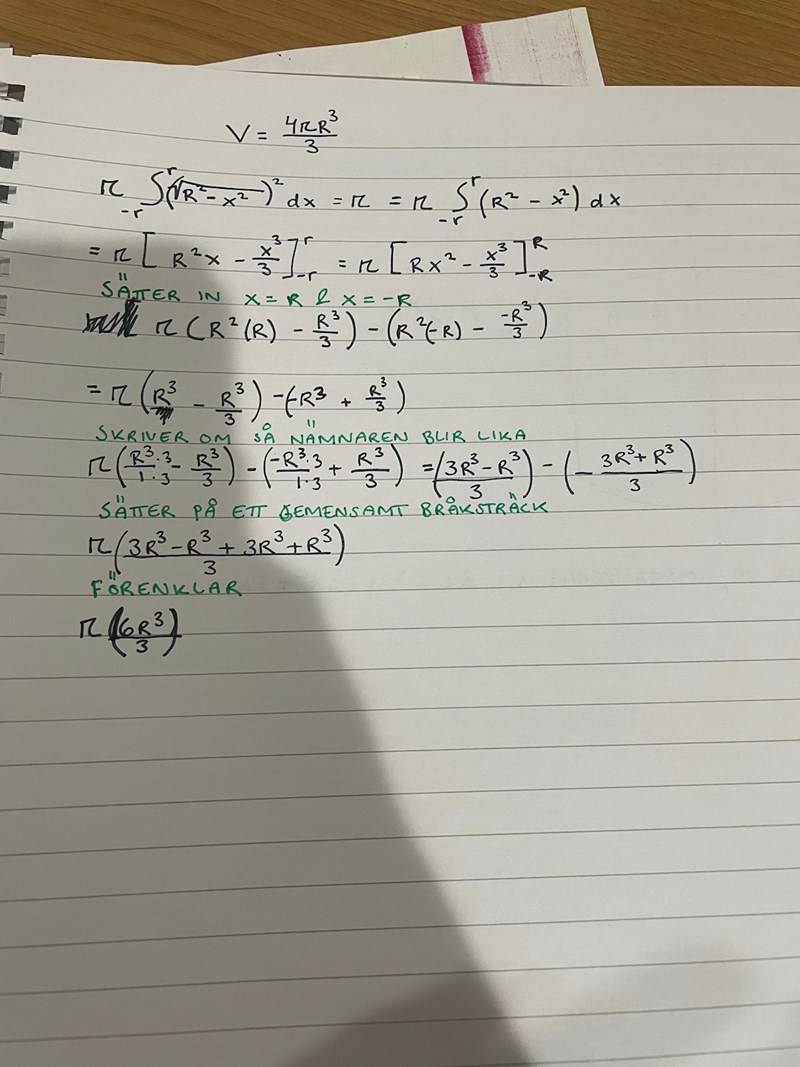 V = 4πR³/3
π ∫₋ᵣʳ (√R² - x²)² dx = π = π ∫₋ᵣʳ (R² - x²) dx
= π [ R²x - x³/3 ]₋ᵣʳ = π [ Rx² - x³/3 ]₋ᴿᴿ
SÄTTER IN x = R & x = -R
π (R²(R) - R³/3) - (R²(-R) - -R³/3)
= π (R³ - R³/3) - (-R³ + R³/3)
SKRIVER OM SÅ NÄMNAREN BLIR LIKA
π (R³·3/1·3 - R³/3) - (-R³·3/1·3 + R³/3) = (3R³ - R³/3) - (- 3R³ + R³/3)
SÄTTER PÅ ETT GEMENSAMT BRÅKSTRÄCK
π (3R³ - R³ + 3R³ + R³/3)
FÖRENKLAR
π (6R³/3)